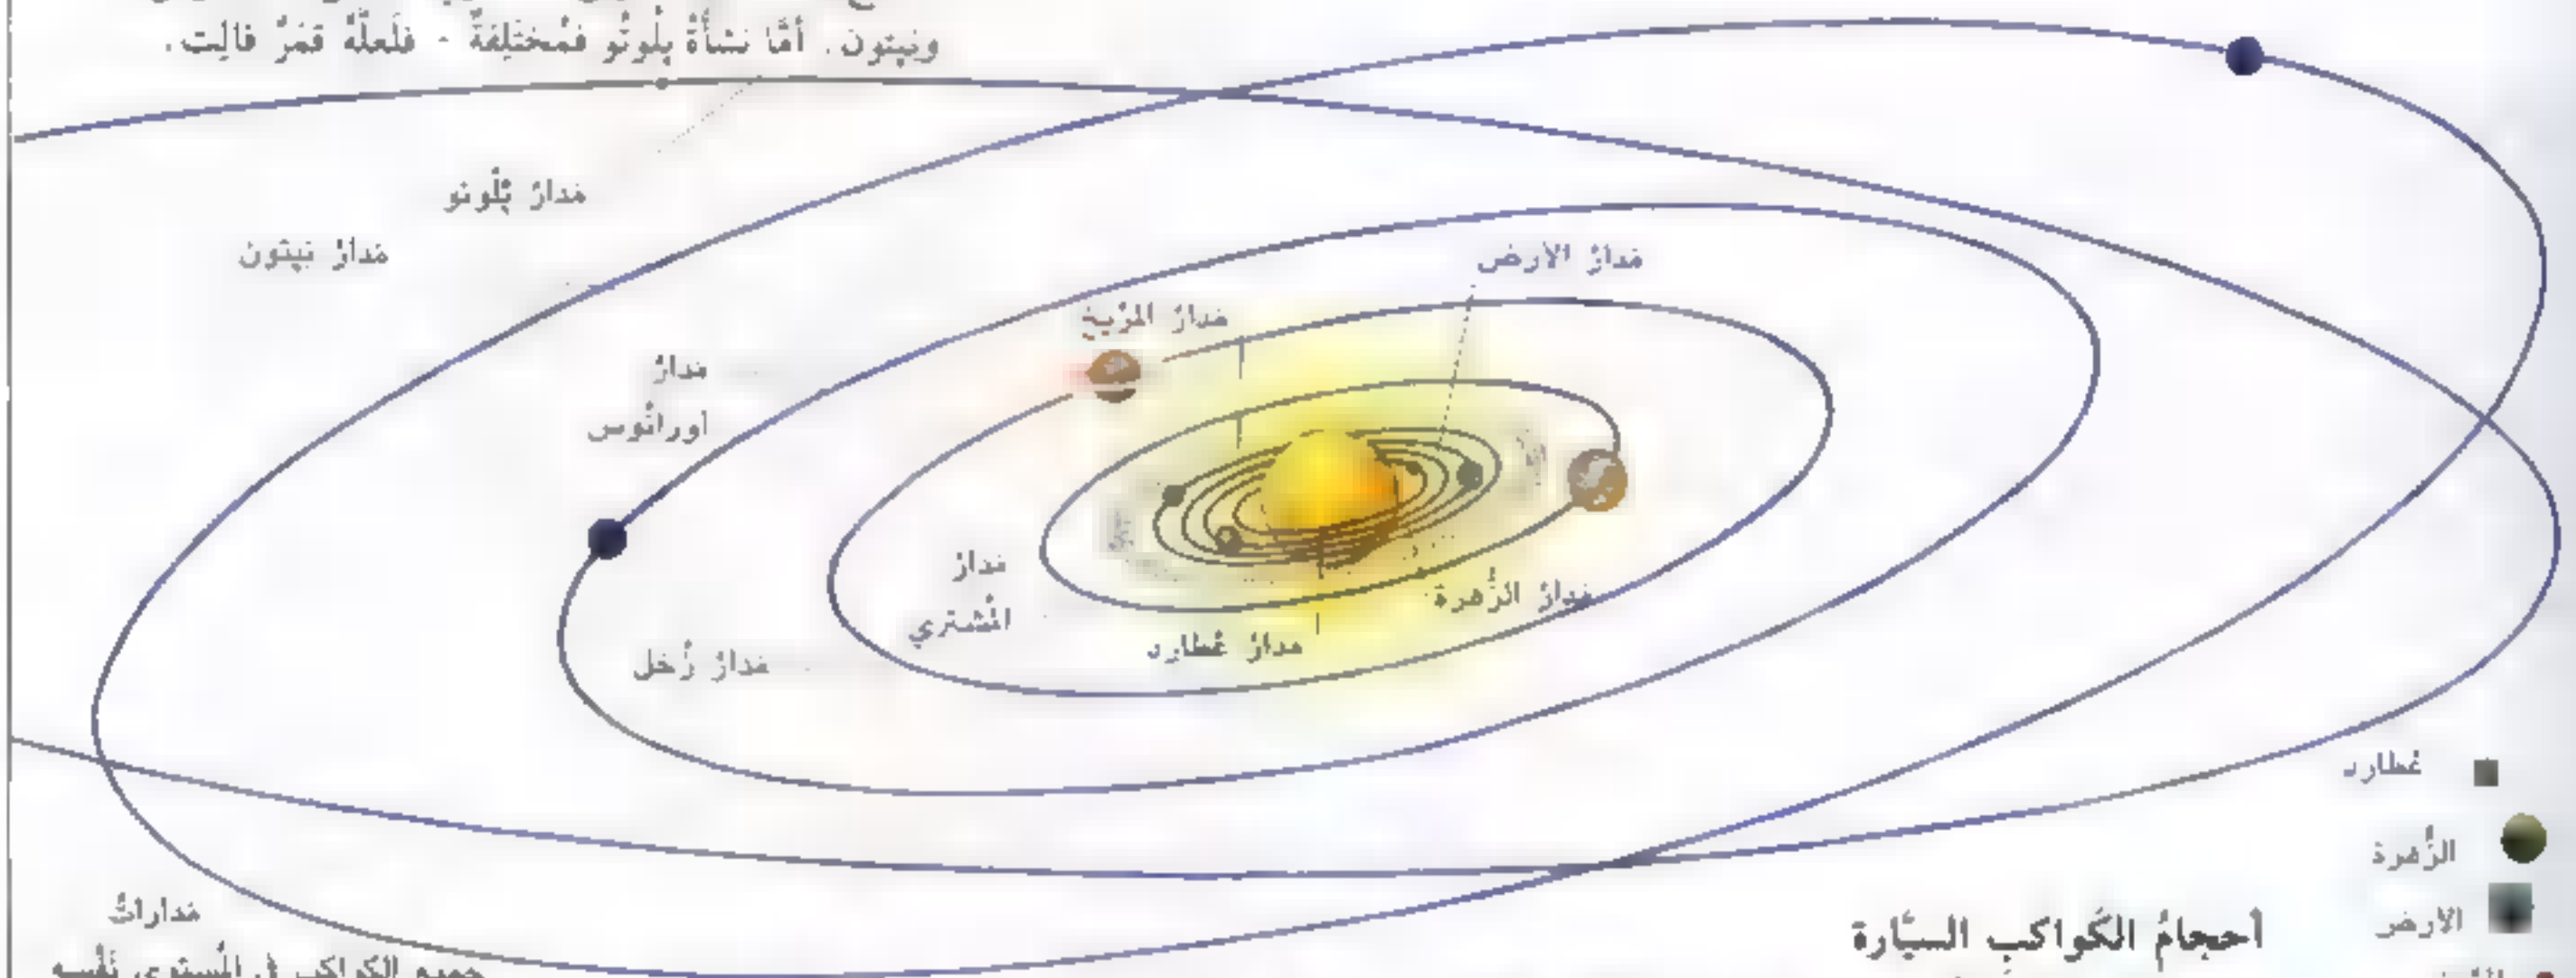 ونپتون. أمَّا نشأةُ پلُوتُو فمُختَلِفَةٌ - فلَعلَّهُ قمَرٌ فالِت.
مَدارُ پْلُوتو
مَدارُ نپتون
مَدارُ الأرض
مَدارُ المرِّيخ
مَدارُ
أورانُوس
مَدارُ
المُشتري
مَدارُ الزُّهرة
مَدارُ عُطارِد
مَدارُ زُحَل
عُطارِد
الزُّهرة
الأرض
أحجامُ الكَواكبِ السيَّارة
مَداراتُ
جميعِ الكواكبِ في المُستوى نَفْسِه